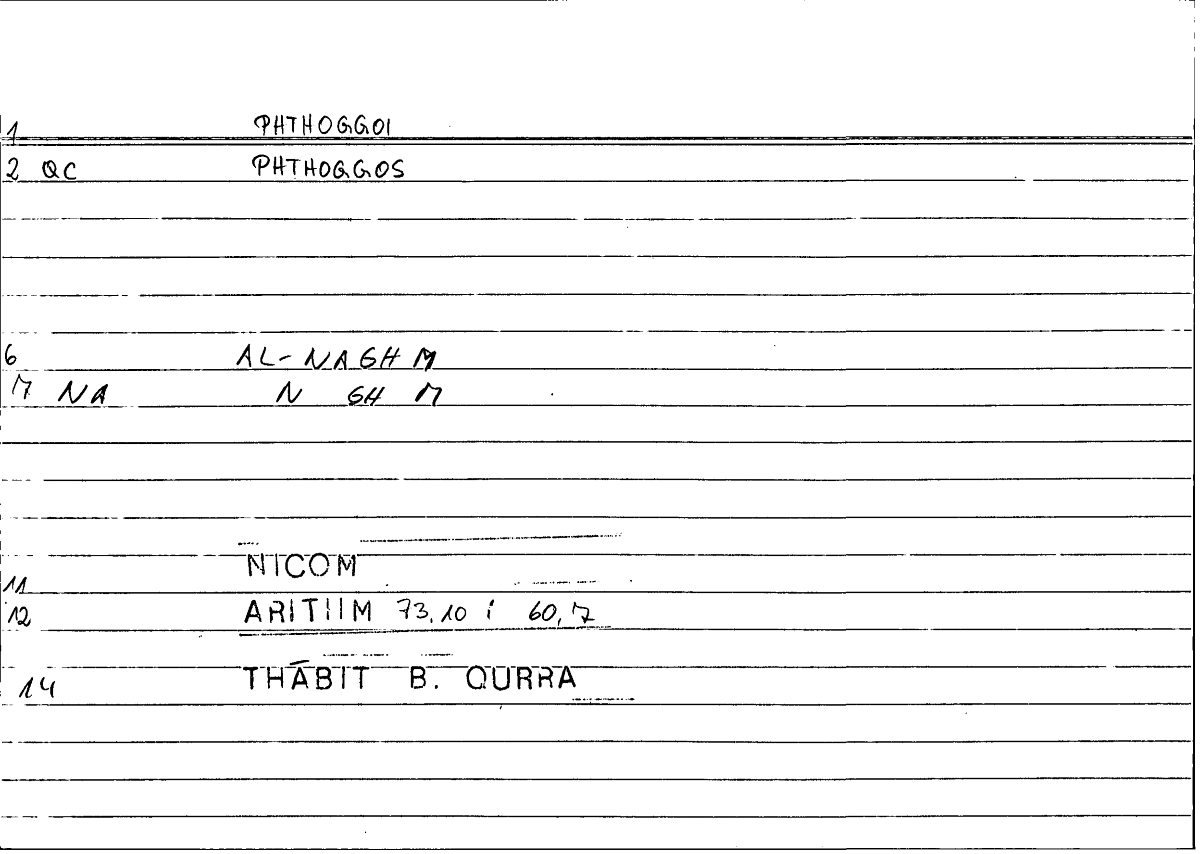 1 PHTHOGGOI
2 QC PHTHOGGOS
6 AL-NAGHM
7 NA N GH M
11 NICOM
12 ARITIIM 73.10 ; 60,7
14 THĀBIT B. QURRA